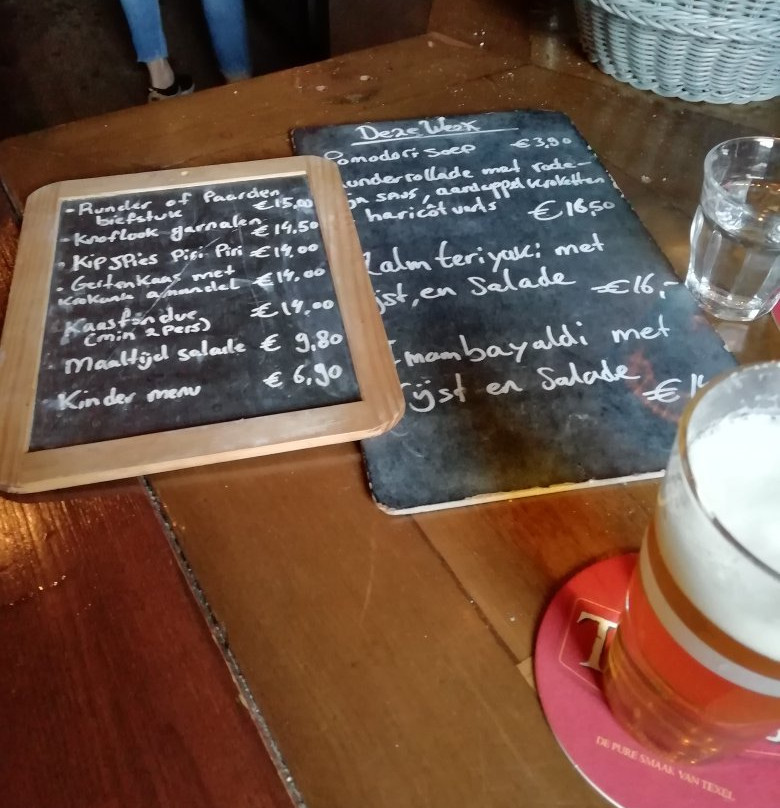 - Runder of Paarden
biefstuk €15,00
- Knoflook garnalen €14,50
- Kip SPies Piri Piri €14,00
- Geitenkaas met €14,00
krokante amandel
Kaasfondue €14,00
(min 2 Pers)
Maaltijd salade € 9,80
Kinder menu € 6,90
Deze Week
Pomodori Soep €3,90
runderollade met rode-
saus, aardappel kroketten
haricot verts €16,50
Zalm teriyaki met
ijst, en Salade €16,-
Imambayaldi met
rijst en Salade
T
DE PURE SMAAK VAN TEXEL